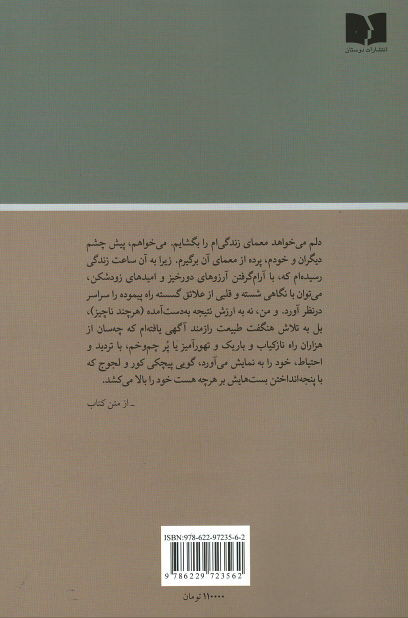 انتشارات دوستان
دلم می‌خواهد معمای زندگی‌ام را بگشایم. می‌خواهم، پیش چشم
دیگران و خودم، پرده از معمای آن برگیرم. زیرا به آن ساعت زندگی
رسیده‌ام که، با آرام‌گرفتن آرزوهای دورخیز و امیدهای زودشکن،
می‌توان با نگاهی شسته و قلبی از علائق گسسته راه پیموده را سراسر
درنظر آورد. و من، نه به ارزش نتیجه به‌دست‌آمده (هرچند ناچیز)،
بل به تلاش هنگفت طبیعت رازمند آگهی یافته‌ام که چه‌سان از
هزاران راه نازکیاب و باریک و تهورآمیز یا پُر چم‌وخم، با تردید و
احتیاط، خود را به نمایش می‌آورد، گویی پیچکی کور و لجوج که
با پنجه‌انداختن بست‌هایش بر هرچه هست خود را بالا می‌کشد.
ـ از متن کتاب
ISBN:978-622-97235-6-2
9 786229 723562
۱۱۰۰۰۰ تومان